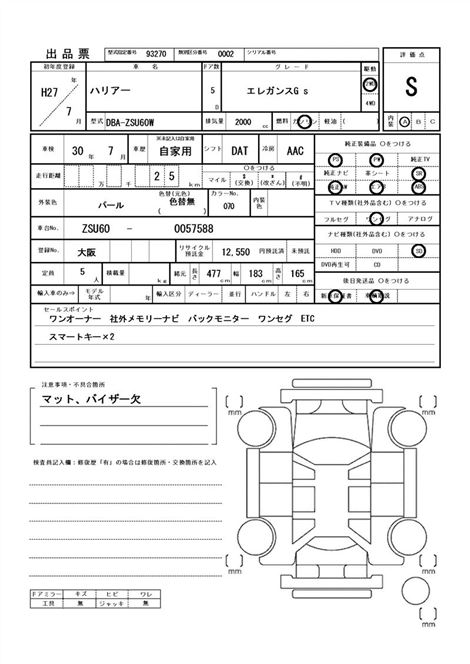 出品票 型式指定番号 93270 類別区分番号 0002 シリアル番号
評価点
S
内装 A B C
初年度登録 車名 ドア数 グレード 駆動
H27年 ハリアー 5D エレガンスG s 2WD
7月 4WD
型式 DBA-ZSU60W 排気量 2000 cc 燃料 ガソリン 軽油 ( )
車検 30年 7月 車歴 ※未記入は自家用 自家用 シフト DAT 冷房 AAC
走行距離 万 千 2 5 km
〇をつける
マイル $(交換) *(改ざん) #(不明)
外装色 パール 色替(元色) 色替無 ( ) カラーNo. 070 内装色
車台No. ZSU60 - 0057588
登録No. 大阪 リサイクル預託金 12,550 円預託済 未預託
定員 5人 積載量 kg 諸元 長さ 477 cm 幅 183 cm 高さ 165 cm
輸入車のみ⇒ モデル年式 年 輸入区分 ディーラー 並行 ハンドル 左 右
純正装備品 〇をつける
PS PW 純正TV
純正ナビ 革シート SR
純正AW エアB ABS
TV種類(社外品含む) 〇をつける
フルセグ ワンセグ アナログ
ナビ種類(社外品含む) 〇をつける
HDD DVD SD
DVD再生可 CD
後日発送品 〇をつける
新車保証書 車輌取説
セールスポイント
ワンオーナー 社外メモリーナビ バックモニター ワンセグ ETC
スマートキー×2
注意事項・不具合箇所
マット、バイザー欠
検査員記入欄：修復歴「有」の場合は修復箇所・交換箇所を記入
mm
mm
mm
mm
mm
Fアミラー キズ ヒビ ワレ
工具 無 ジャッキ 無